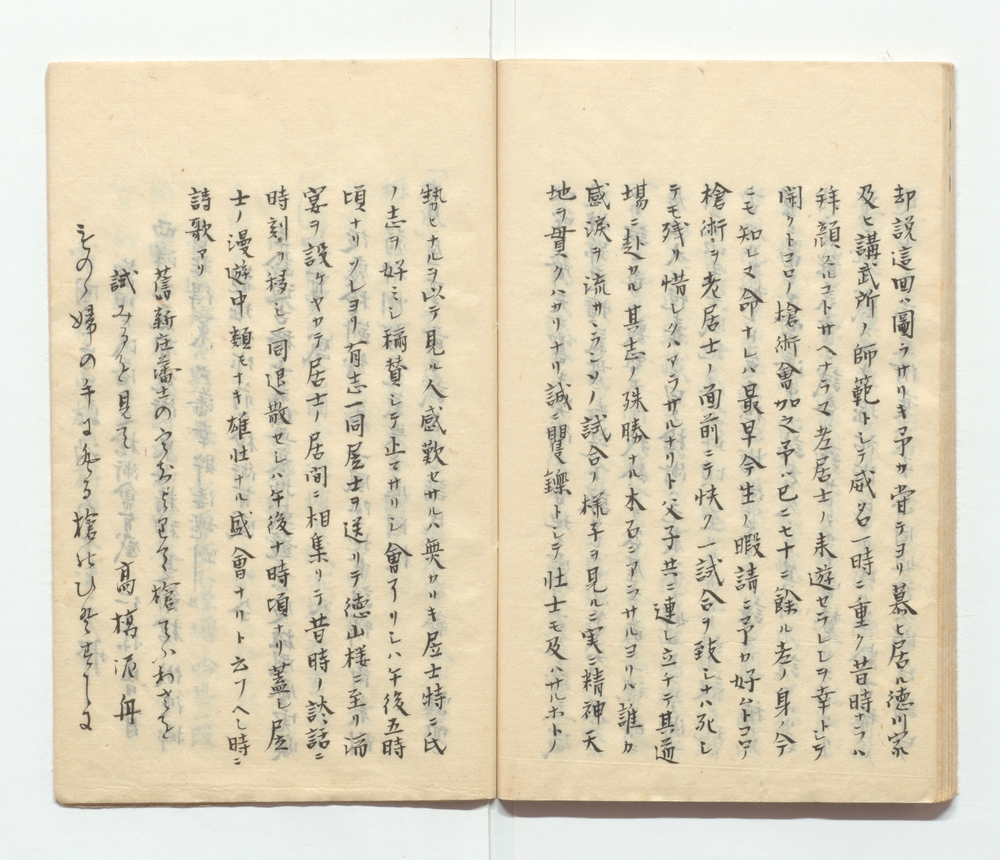 却説這回ハ圖ラサリキ予カ嘗テヨリ慕ヒ居ル徳川家
及ヒ講武所ノ師範トシテ威名一時ニ重ク昔時ナラハ
拜顔スルコトサヘナラヌ老居士ノ来遊セラレシヲ幸トシテ
開クトコロノ槍術會加之予ハ已ニ七十ニ餘ル老ノ身ノ今
ニモ知レヌ命ナレハ最早今生ノ暇請ニ予カ好ムトコロノ
槍術ヲ老居士ノ面前ニテ快ク一試合ヲ致シナハ死シ
テモ残リ惜シクハアラサルナリト父子共ニ連レ立チテ其道
場ニ赴カル其志ノ殊勝ナル木石ニアラサルヨリハ誰カ
感涙ヲ流サヽランソノ試合ノ様子ヲ見ルニ実ニ精神天
地ヲ貫クハカリナリ誠ニ矍鑠トシテ壮士モ及ハサルホトノ
勢ヒナルヲ以テ見ル人感歎セサルハ無カリキ居士特ニ氏
ノ志ヲ好ミシ稱賛シテ止マサリシ會了リシハ午後五時
頃ナリソレヨリ有志一同居士ヲ送リテ徳山樓ニ至リ酒
宴ヲ設ケヤカテ居士ノ居間ニ相集リテ昔時ノ談話ニ
時刻ヲ移シ一同退散セシハ午後十時頃ナリ蓋シ居
士ノ漫遊中類モナキ雄壮ナル盛會ナリト云フヘシ時ニ
詩歌アリ
舊新庄藩士の
槍
試みるを見て 高橋泥舟
ものゝ婦の手
槍